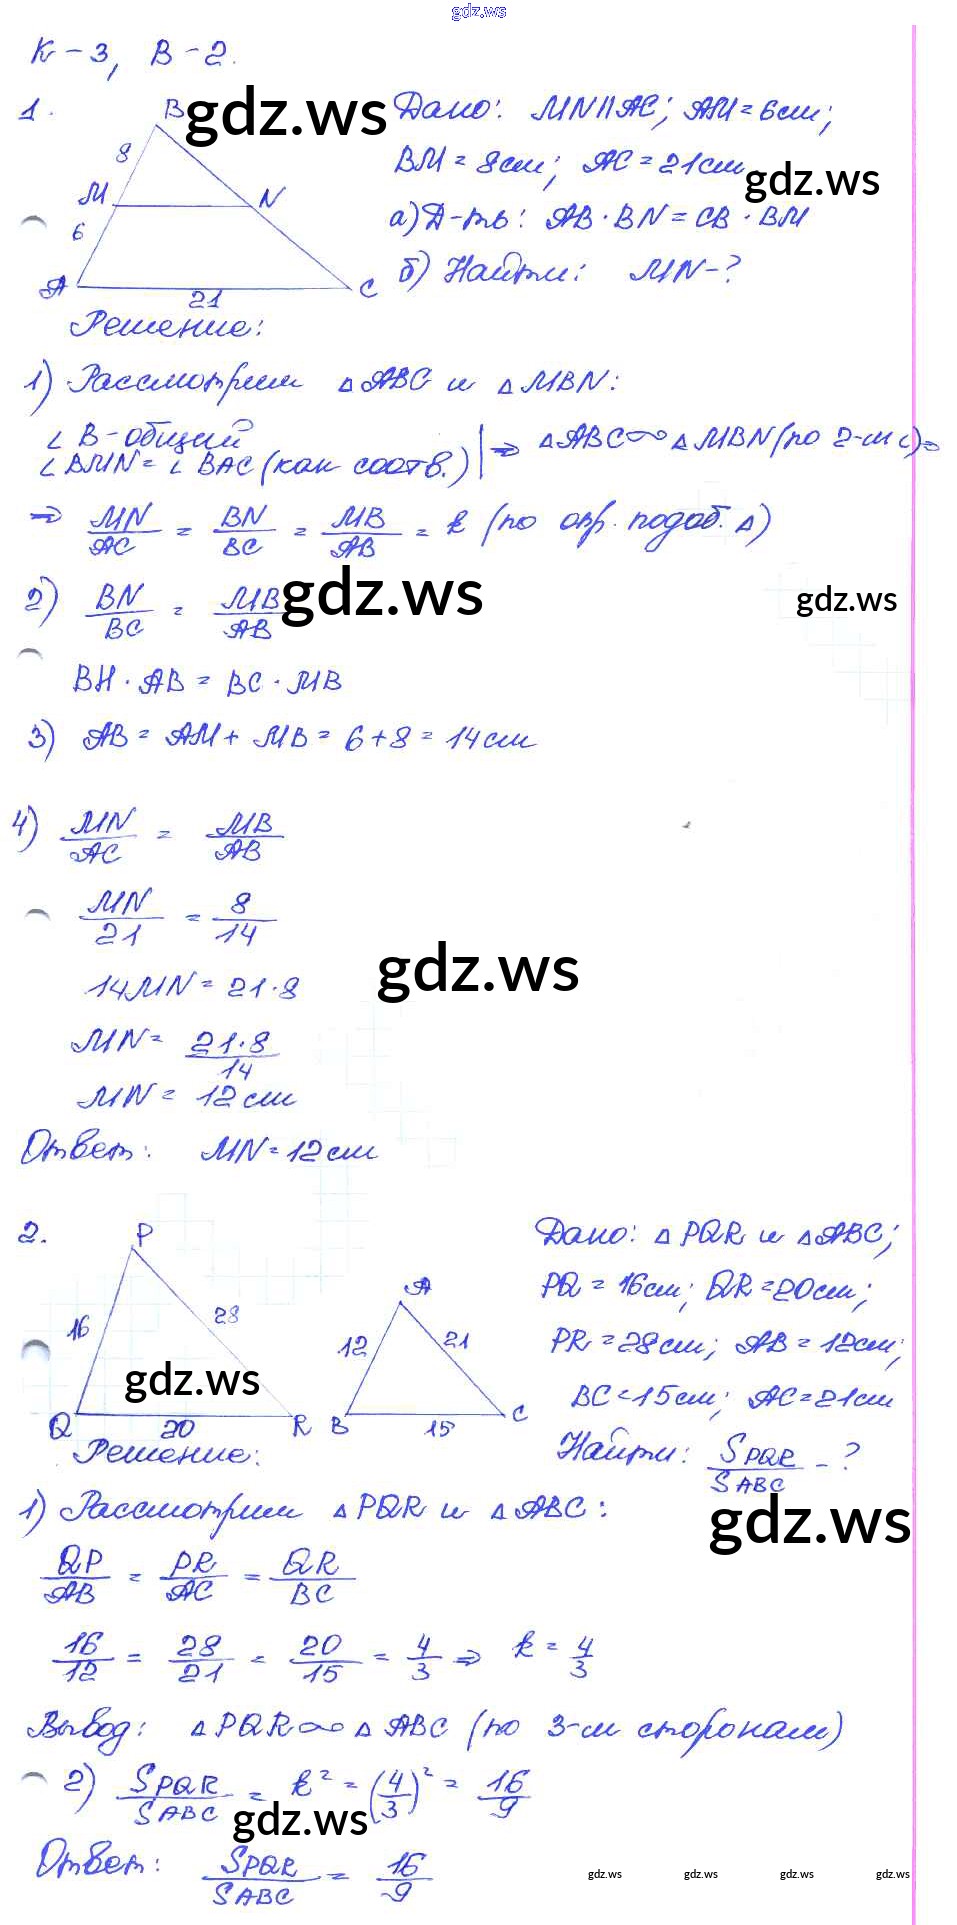 gdz.ws
К-3, В-2.
1.
B
8
M
N
6
A
21
C
gdz.ws
Дано: MN||AC; AM = 6см;
BM = 8см; AC = 21см
gdz.ws
а) Д-ть: AB · BN = CB · BM
б) Найти: MN-?
Решение:
1) Рассмотрим △ABC и △MBN:
∠B-общий
∠BMN = ∠BAC (как соотв.) | ⇒ △ABC ∾ △MBN (по 2-м ∠) ⇒
⇒ MN/AC = BN/BC = MB/AB = k (по опр. подоб. △)
2) BN/BC = MB/AB
gdz.ws
gdz.ws
BH · AB = BC · MB
3) AB = AM + MB = 6+8 = 14см
4) MN/AC = MB/AB
MN/21 = 8/14
gdz.ws
14MN = 21·8
MN = 21·8/14
MN = 12 см
Ответ: MN = 12см
2.
P
16
28
Q
20
R
gdz.ws
A
12
21
B
15
C
Дано: △PQR и △ABC;
PQ = 16см; QR = 20см;
PR = 28см; AB = 12см;
BC = 15см; AC = 21см
Найти: SPQR/SABC - ?
gdz.ws
Решение:
1) Рассмотрим △PQR и △ABC:
QP/AB = PR/AC = QR/BC
16/12 = 28/21 = 20/15 = 4/3 ⇒ k = 4/3
Вывод: △PQR ∾ △ABC (по 3-м сторонам)
2) SPQR/SABC = k² = (4/3)² = 16/9
gdz.ws
Ответ: SPQR/SABC = 16/9
gdz.ws gdz.ws gdz.ws gdz.ws